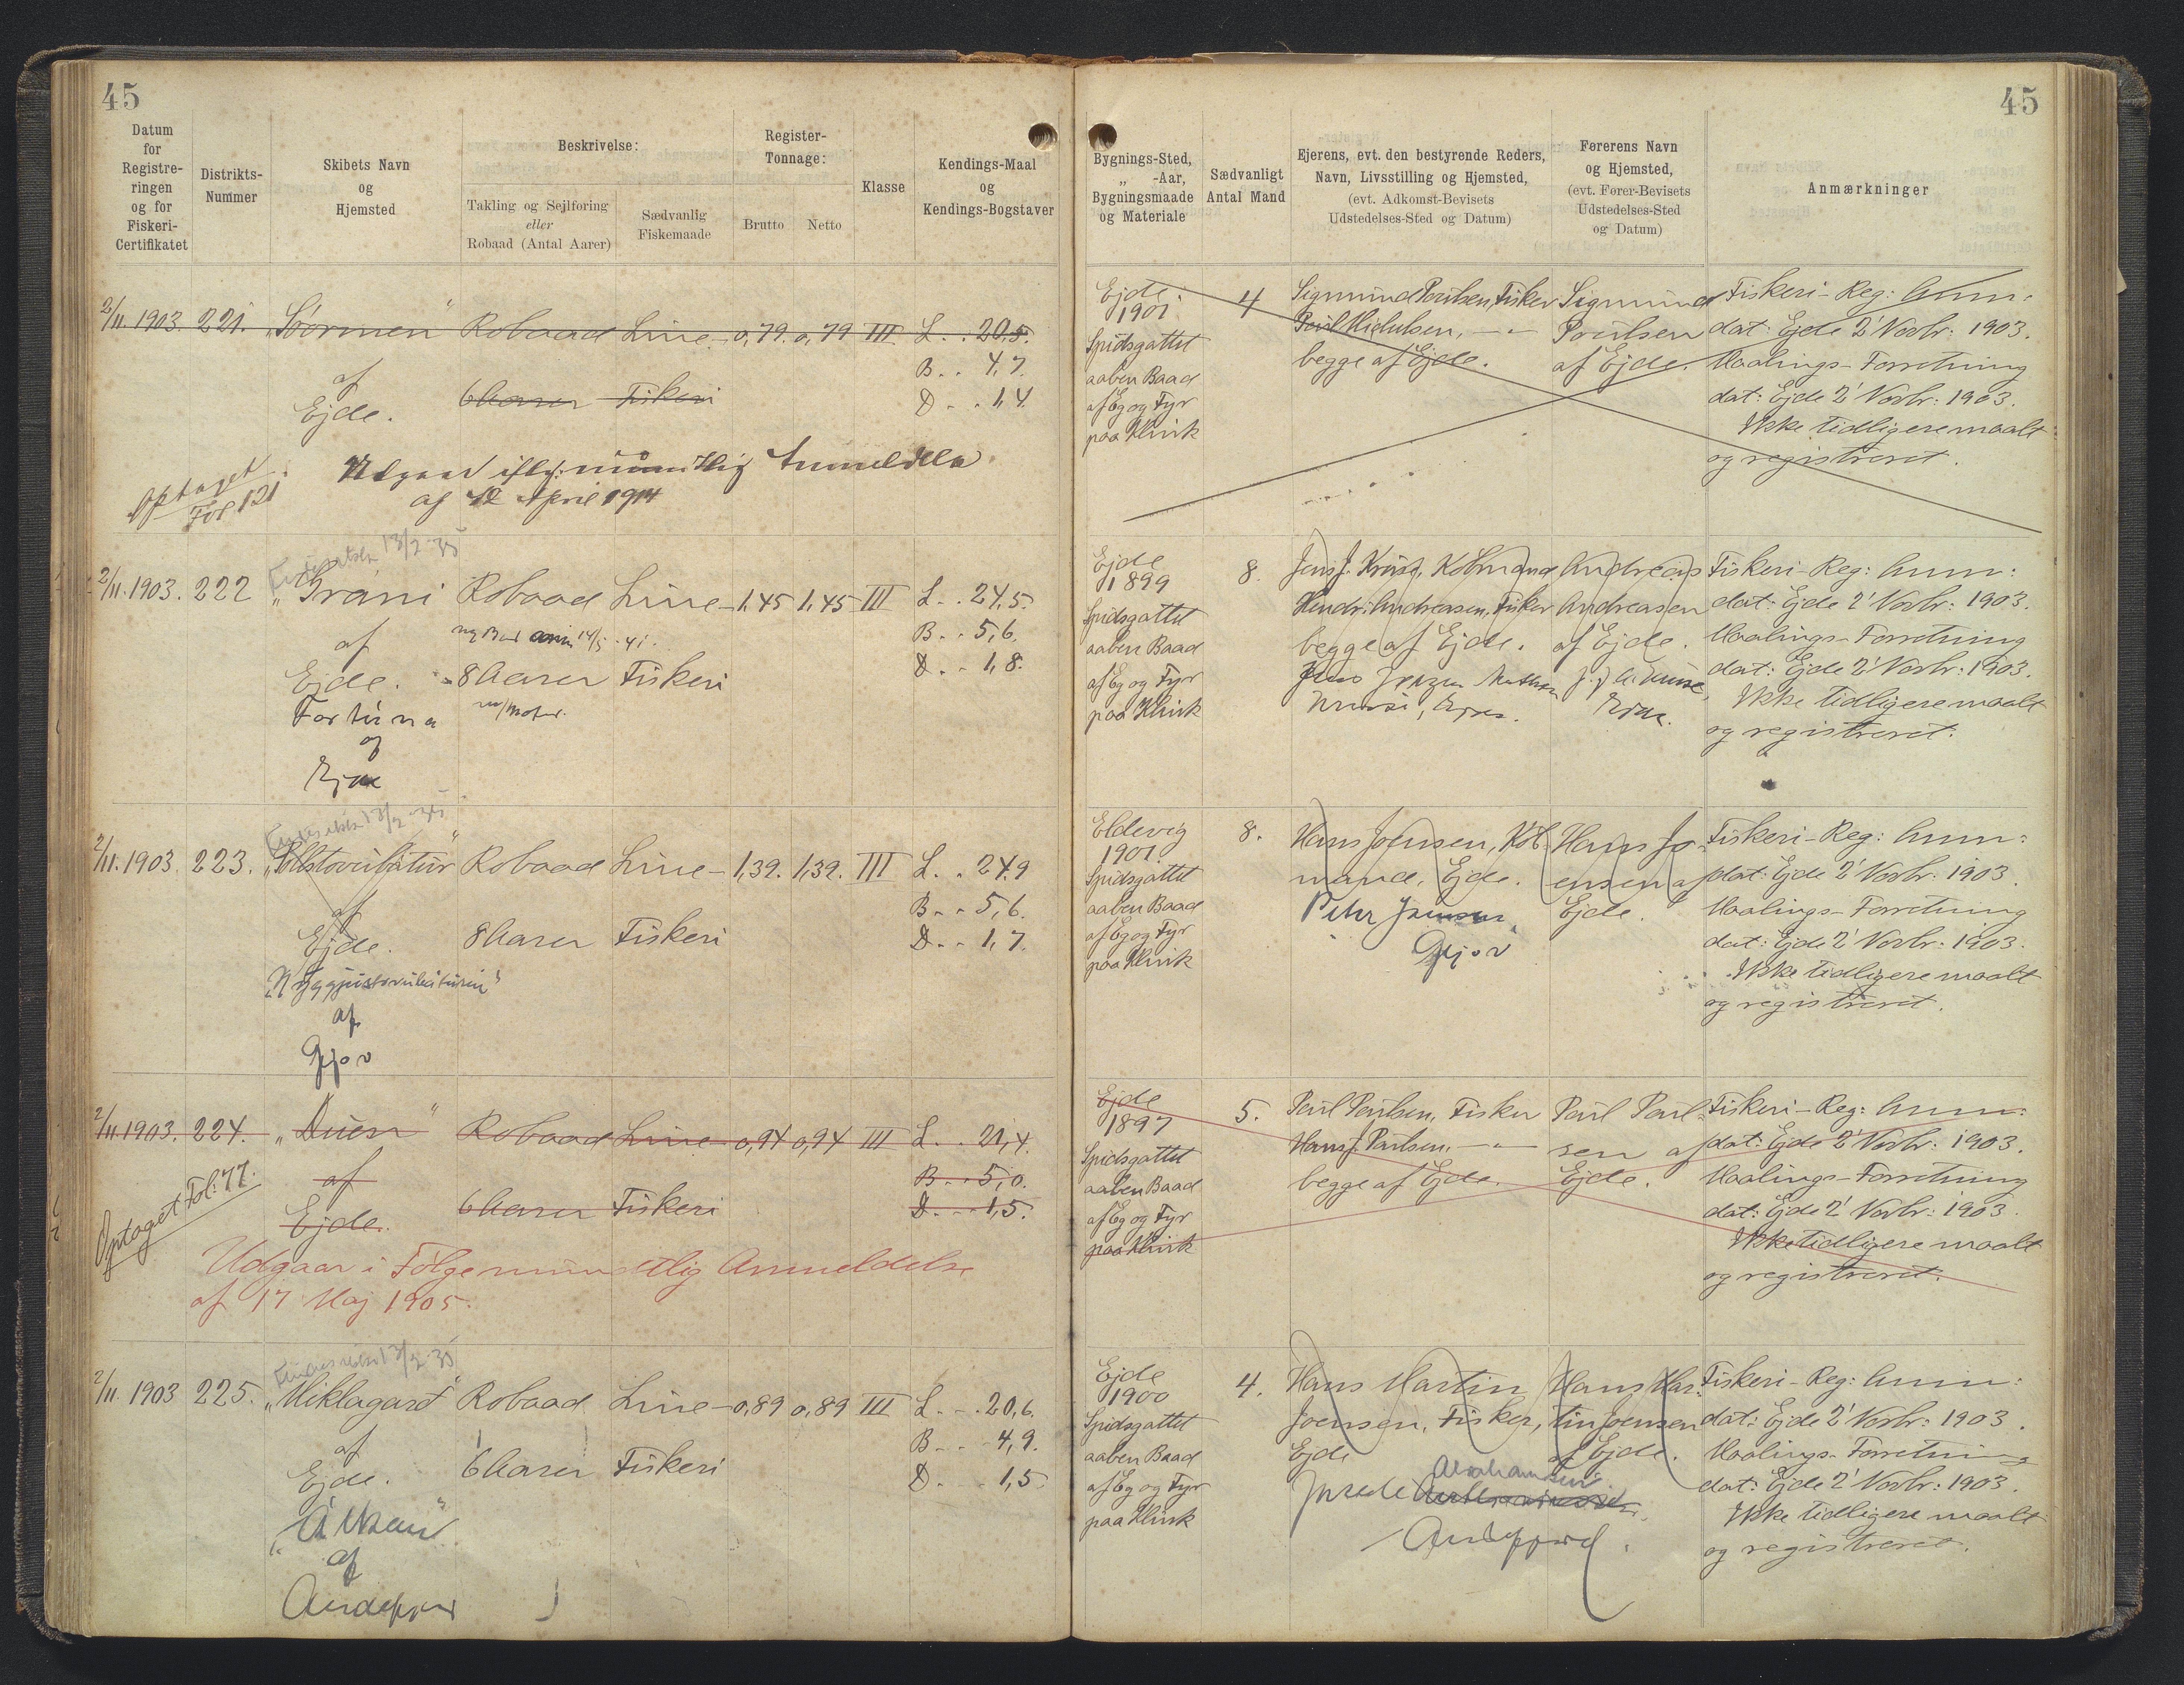 45
45
Datum
for
Registre-
ringen
og for
Fiskeri-
Certifikatet
Distrikts-
Nummer
Skibets Navn
og
Hjemsted
Beskrivelse:
Takling og Sejlføring
eller
Robaad (Antal Aarer)
Sædvanlig
Fiskemaade
Register-
Tonnage:
Brutto Netto
Klasse
Kendings-Maal
og
Kendings-Bogstaver
Bygnings-Sted,
„ -Aar,
Bygningsmaade
og Materiale
Sædvanligt
Antal Mand
Ejerens, evt. den bestyrende Reders,
Navn, Livsstilling og Hjemsted,
(evt. Adkomst-Bevisets
Udstedelses-Sted og Datum)
Førerens Navn
og Hjemsted,
(evt. Fører-Bevisets
Udstedelses-Sted
og Datum)
Anmærkninger
2/11. 1903. 221. „Stormen" Robaad Line- 0,79. 0,79 III L . . 20,5.
B. . 4,7.
af
Ejde. 6 Aarer Fiskeri D . . 1,4.
Udgaar iflg. mündtlig Anmeldelse
af 12 April 1914
Optaget
Fol 121
Ejde
1901.
Spidsgattet
aaben Baad
af Eg og Fyr
paa Klink
4
Sigmund Poulsen, Fisker
begge af Ejde.
Sigmund
Poulsen
af Ejde.
Fiskeri-Reg: Anm:
dat: Ejde 2' Novbr: 1903.
Maalings-Forretning
dat: Ejde 2' Novbr: 1903.
Ikke tidligere maalt
og registreret.
13/2-35
2/11. 1903. 222 „Grani Robaad Line- 1,45 1,45 III L . . 24,5.
B. . 5,6.
af
Ejde. 8 Aarer Fiskeri D . . 1,8.
m/Motor.
Fortuna
af
Ejde
Ejde
1899
Spidsgattet
aaben Baad
af Eg og Fyr
paa Klink
8.
Hendr. Andreasen, Fisker
begge af Ejde.
Andreas
Andreasen
af Ejde.
Ejde.
Fiskeri-Reg: Anm:
dat: Ejde 2' Novbr: 1903.
Maalings-Forretning
dat: Ejde 2' Novbr: 1903.
Ikke tidligere maalt
og registreret.
13/2-35
2/11. 1903 223. Robaad Line- 1,39. 1,39. III L. . 24,9
B. . 5,6.
af
Ejde. 8 Aarer Fiskeri D. . 1,7.
af
Gjov
Eldevig
1901
Spidsgattet
aaben Baad
af Eg og Fyr
paa Klink
8.
Hans Joensen, Køb-
mand, Ejde.
Peter Joensen,
Gjov
Hans Jo-
ensen af
Ejde.
Fiskeri-Reg: Anm:
dat: Ejde 2' Novbr: 1903.
Maalings-Forretning
dat: Ejde 2' Novbr: 1903.
Ikke tidligere maalt
og registreret.
2/11. 1903. 224. „Duen" Robaad Line- 0,94 0,94 III L . . 21,4.
af B. . 5,0.
Ejde. 6 Aarer Fiskeri D. . 1,5.
Optaget Fol: 77.
Udgaar i Følge mundtlig Anmeldelse
af 17 Maj 1905.
Ejde
1897
Spidsgattet
aaben Baad
af Eg og Fyr
paa Klink
5.
Poul Poulsen, Fisker
Hans J. Poulsen, - " -
begge af Ejde.
Poul Poul-
sen af
Ejde.
Fiskeri-Reg: Anm:
dat: Ejde 2' Novbr: 1903.
Maalings-Forretning
dat: Ejde 2' Novbr: 1903.
Ikke tidligere maalt
og registreret.
13/2-35
2/11. 1903 225. „Miklagard" Robaad Line- 0,89 0,89 III L . . 20,6.
af B. . 4,9.
Ejde. 6 Aarer Fiskeri D. . 1,5
af
Andefjord
Ejde
1900
Spidsgattet
aaben Baad
af Eg og Fyr
paa Klink
4.
Hans Martin
Joensen, Fisker,
Ejde
Abrahamsen
Andefjord.
Hans Mar-
tin Joensen
af Ejde.
Fiskeri-Reg: Anm:
dat: Ejde 2' Novbr: 1903.
Maalings-Forretning
dat: Ejde 2' Novbr: 1903.
Ikke tidligere maalt
og registreret.